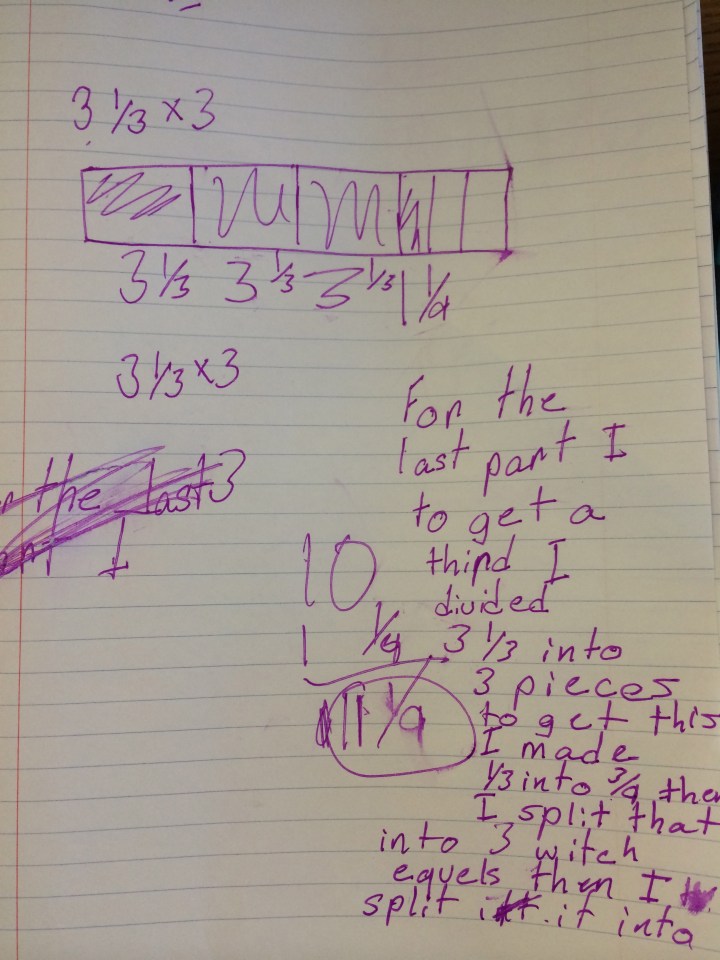 3 1/3 × 3
3 1/3 3 1/3 3 1/3 1 1/9
3 1/3 × 3
the last 3
I
10
1 1/9
11 1/9
For the
last part I
to get a
third I
divided
3 1/3 into
3 pieces
to get this
I made
1/3 into 3/9 then
I split that
into 3 witch
equels then I
split it into